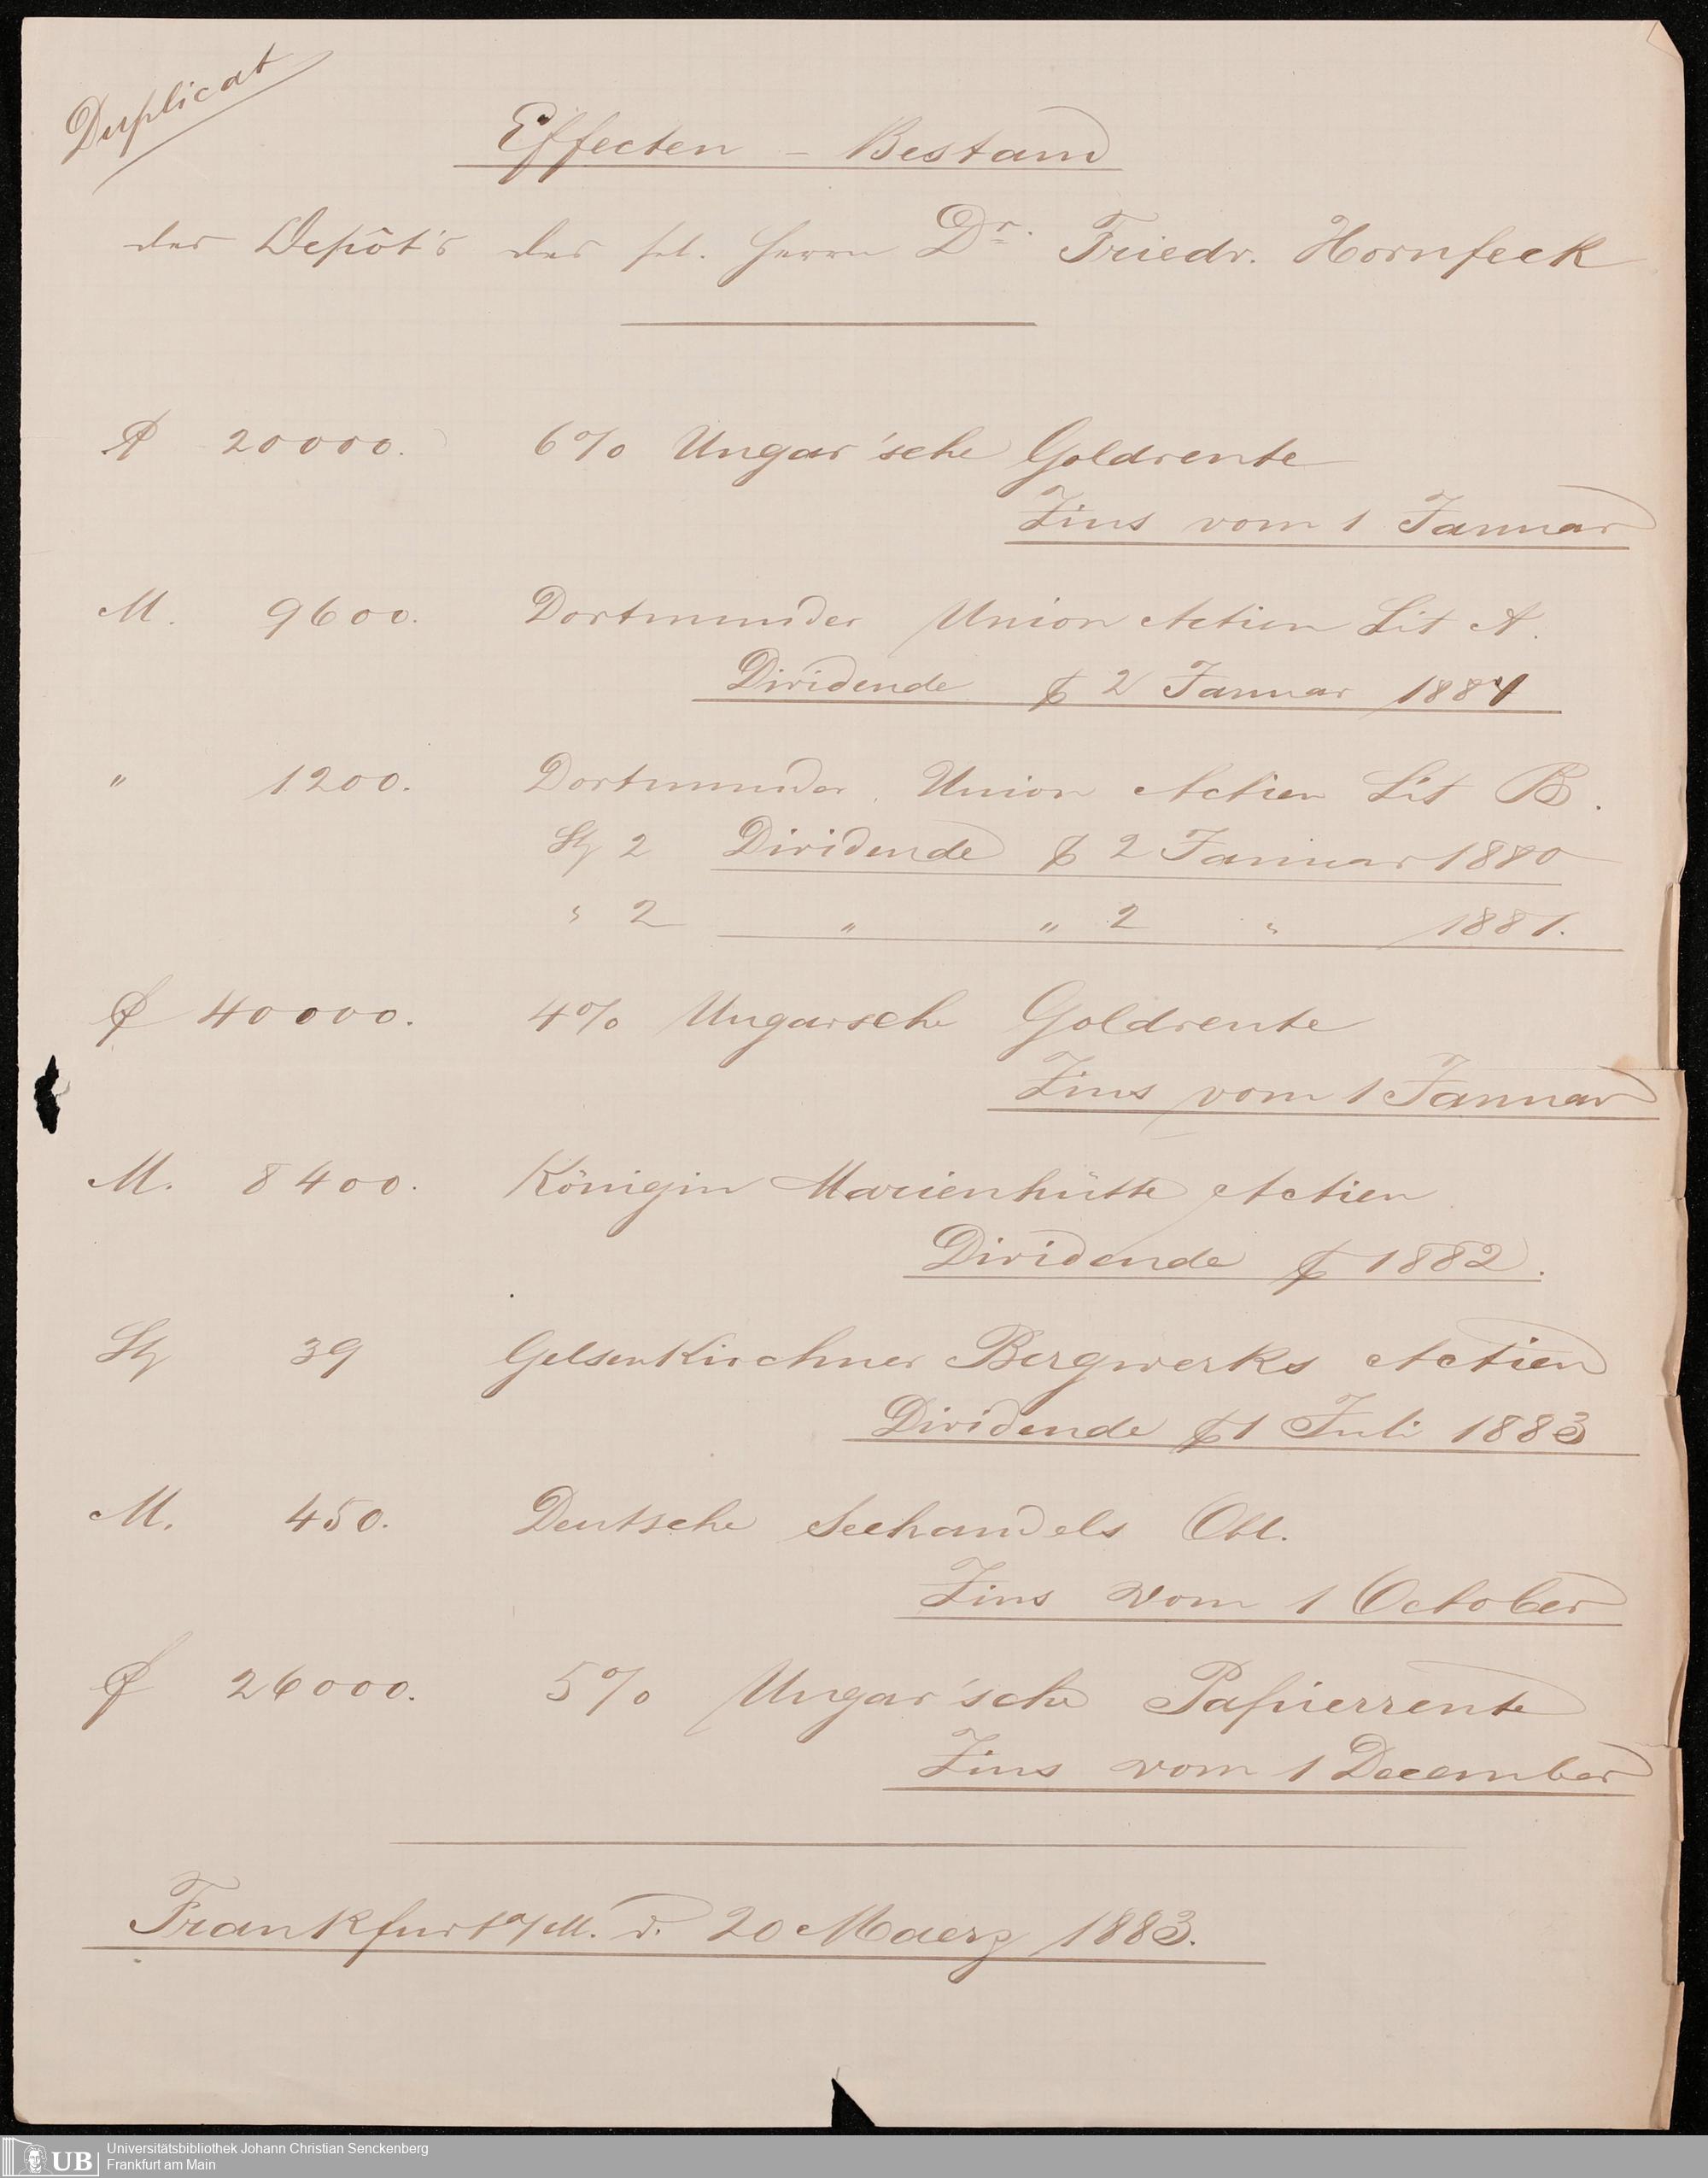 Duplicat
Effecten - Bestand
des Depôt's des sel. Herrn Dr. Friedr. Hornfeck
20000. 6% Ungar'sche Goldrente
Zins vom 1 Januar
M. 9600. Dortmunder Union Actien Lit A.
Dividende 2 Januar 1884
" 1200. Dortmunder Union Actien Lit B.
St 2 Dividende 2 Januar 1880
" 2 " " 2 " 1881.
40000. 4% Ungarsche Goldrente
Zins vom 1 Januar
M. 8400. Königin Marienhütte Actien
Dividende 1882.
St 39 Gelsenkirchner Bergwerks Actien
Dividende 1 Juli 1883
M. 450. Deutsche Seehandels Obl.
Zins vom 1 October
26000. 5% Ungar'sche Papierrente
Zins vom 1 December
Frankfurt a/M. d. 20 Maerz 1883.
UB Universitätsbibliothek Johann Christian Senckenberg
Frankfurt am Main